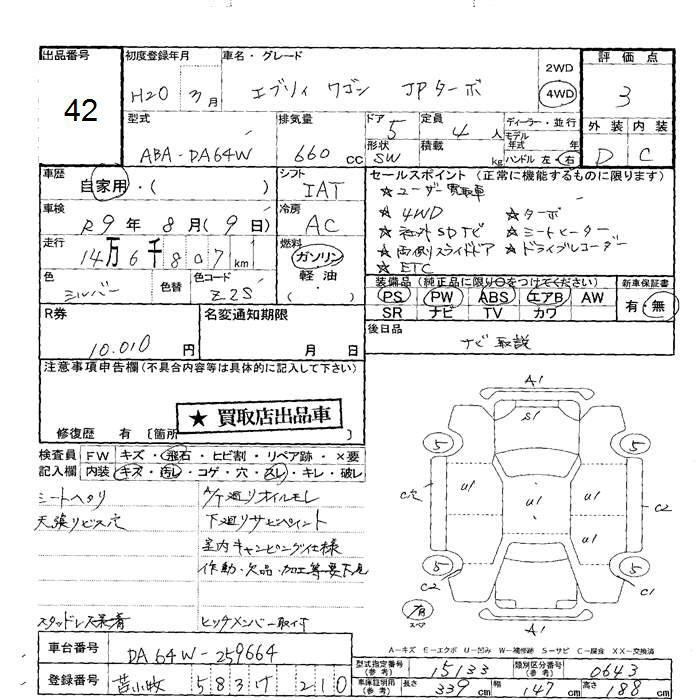 出品番号
42
初度登録年月
H20 3月
車名・グレード
エブリィ ワゴン JPターボ
2WD
4WD
評価点
3
外装 内装
D C
型式
ABA-DA64W
排気量
660 cc
ドア
5
形状
SW
定員
4 人
積載
kg
ディーラー・並行
モデル
年式 年
ハンドル 左・右
車歴
自家用・( )
シフト
IAT
車検
R9年 8月(9日)
冷房
AC
走行
14万6千807km
燃料
ガソリン
軽油
( ・ )
色
シルバー
色替
色コード
Z2S
セールスポイント (正常に機能するものに限ります)
★ユーザー買取車
★4WD ★ターボ
★社外SDナビ ★シートヒーター
★両側スライドドア ★ドライブレコーダー
★ETC
装備品(純正品に限り○をつけてください)
PS PW ABS エアB AW
SR ナビ TV カワ
新車保証書
有・無
R券
10,010円
名変通知期限
月 日
後日品
ナビ取説
注意事項申告欄(不具合内容等は具体的に記入して下さい)
★ 買取店出品車
修復歴 有 [箇所
検査員記入欄
FW キズ・飛石・ヒビ割・リペア跡・×要
内装 キズ・汚レ・コゲ・穴・スレ・キレ・破レ
シートヘタリ
天張リビス穴
A/T廻リオイルモレ
下廻リサビペイント
室内キャンピング仕様
作動・欠品・加工等要下見
スタッドレス装着
ヒッチメンバー取付
A1
S1
5
5
C穴
U1
U1
U1
C2
U1
5
5
C2
C1
有
スペア
A1
A-キズ E-エクボ U-凹み W-補修跡 S-サビ C-腐食 XX-交換済
車台番号
DA64W-259664
登録番号
苫小牧 583 す 210
型式指定番号
(参考)
15133
類別区分番号
(参考)
0643
車庫証明用
(参考)
長さ
339cm
幅
147cm
高さ
188cm